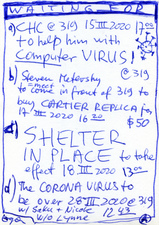 WAITING FOR
a) CHC @ 319 15 III 2020 12 00
to help him with
Computer VIRUS!
b) Steven Metersky @ 319
to meet come in front of 319 to
buy CARTIER REPLICA for
17 III 2020 16 20 $50
c) SHELTER
IN PLACE to take
effect 18 III 2020 13 00
d) The CORONA VIRUS to
be over 28 III 2020 @ 319
w/ Saku + Nicole 12 43
w/o Lynne